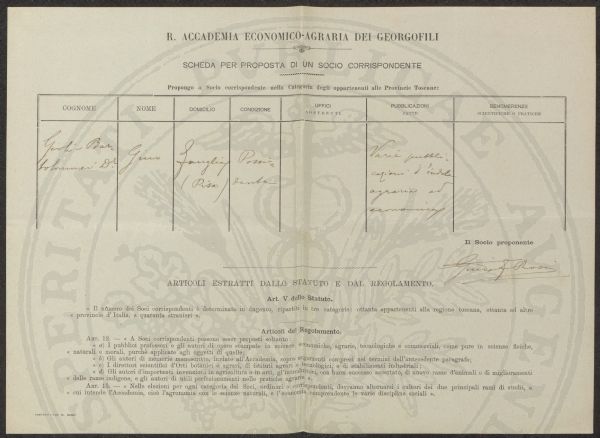 R. ACCADEMIA ECONOMICO-AGRARIA DEI GEORGOFILI
SCHEDA PER PROPOSTA DI UN SOCIO CORRISPONDENTE
Propongo a Socio corrispondente nella Categoria degli appartenenti alle Provincie Toscane:
COGNOME NOME DOMICILIO CONDIZIONE UFFICI PUBBLICAZIONI BENEMERENZE
SOSTENUTI FATTE SCIENTIFICHE O PRATICHE
Gino Possi- Varie pubbli-
(Pisa) dente cazioni d'indole
agraria ed
economica
Il Socio proponente
ARTICOLI ESTRATTI DALLO STATUTO E DAL REGOLAMENTO.
Art. V dello Statuto.
« Il numero dei Soci corrispondenti è determinato in dugento, ripartiti in tre categorie: ottanta appartenenti alla regione toscana, ottanta ad altre
« provincie d'Italia, e quaranta stranieri ».
Articoli del Regolamento.
« ART. 12. — « A Soci corrispondenti possono esser proposti soltanto:
« a) I pubblici professori e gli autori di opere stampate in scienze economiche, agrarie, tecnologiche e commerciali, come pure in scienze fisiche,
« naturali o morali, purchè applicate agli oggetti di quelle;
« b) Gli autori di memorie manoscritte, inviate all'Accademia, sopra argomenti compresi nei termini dell'antecedente paragrafo;
« c) I direttori scientifici d'Orti botanici e agrari, di istituti agrari e tecnologici, e di stabilimenti industriali;
« d) Gli autori d'importanti invenzioni in agricoltura o in arti, gl'introduttori, con buon successo accertato, di nuove razze d'animali o di miglioramenti
« delle razze indigene, e gli autori di utili perfezionamenti nelle pratiche agrarie ».
« ART. 13. — « Nelle elezioni per ogni categoria dei Soci, ordinari e corrispondenti, dovranno alternarsi i cultori dei due principali rami di studi, a
« cui intende l'Accademia, cioè l'agronomia con le scienze naturali, e l'economia comprendente le varie discipline sociali ».